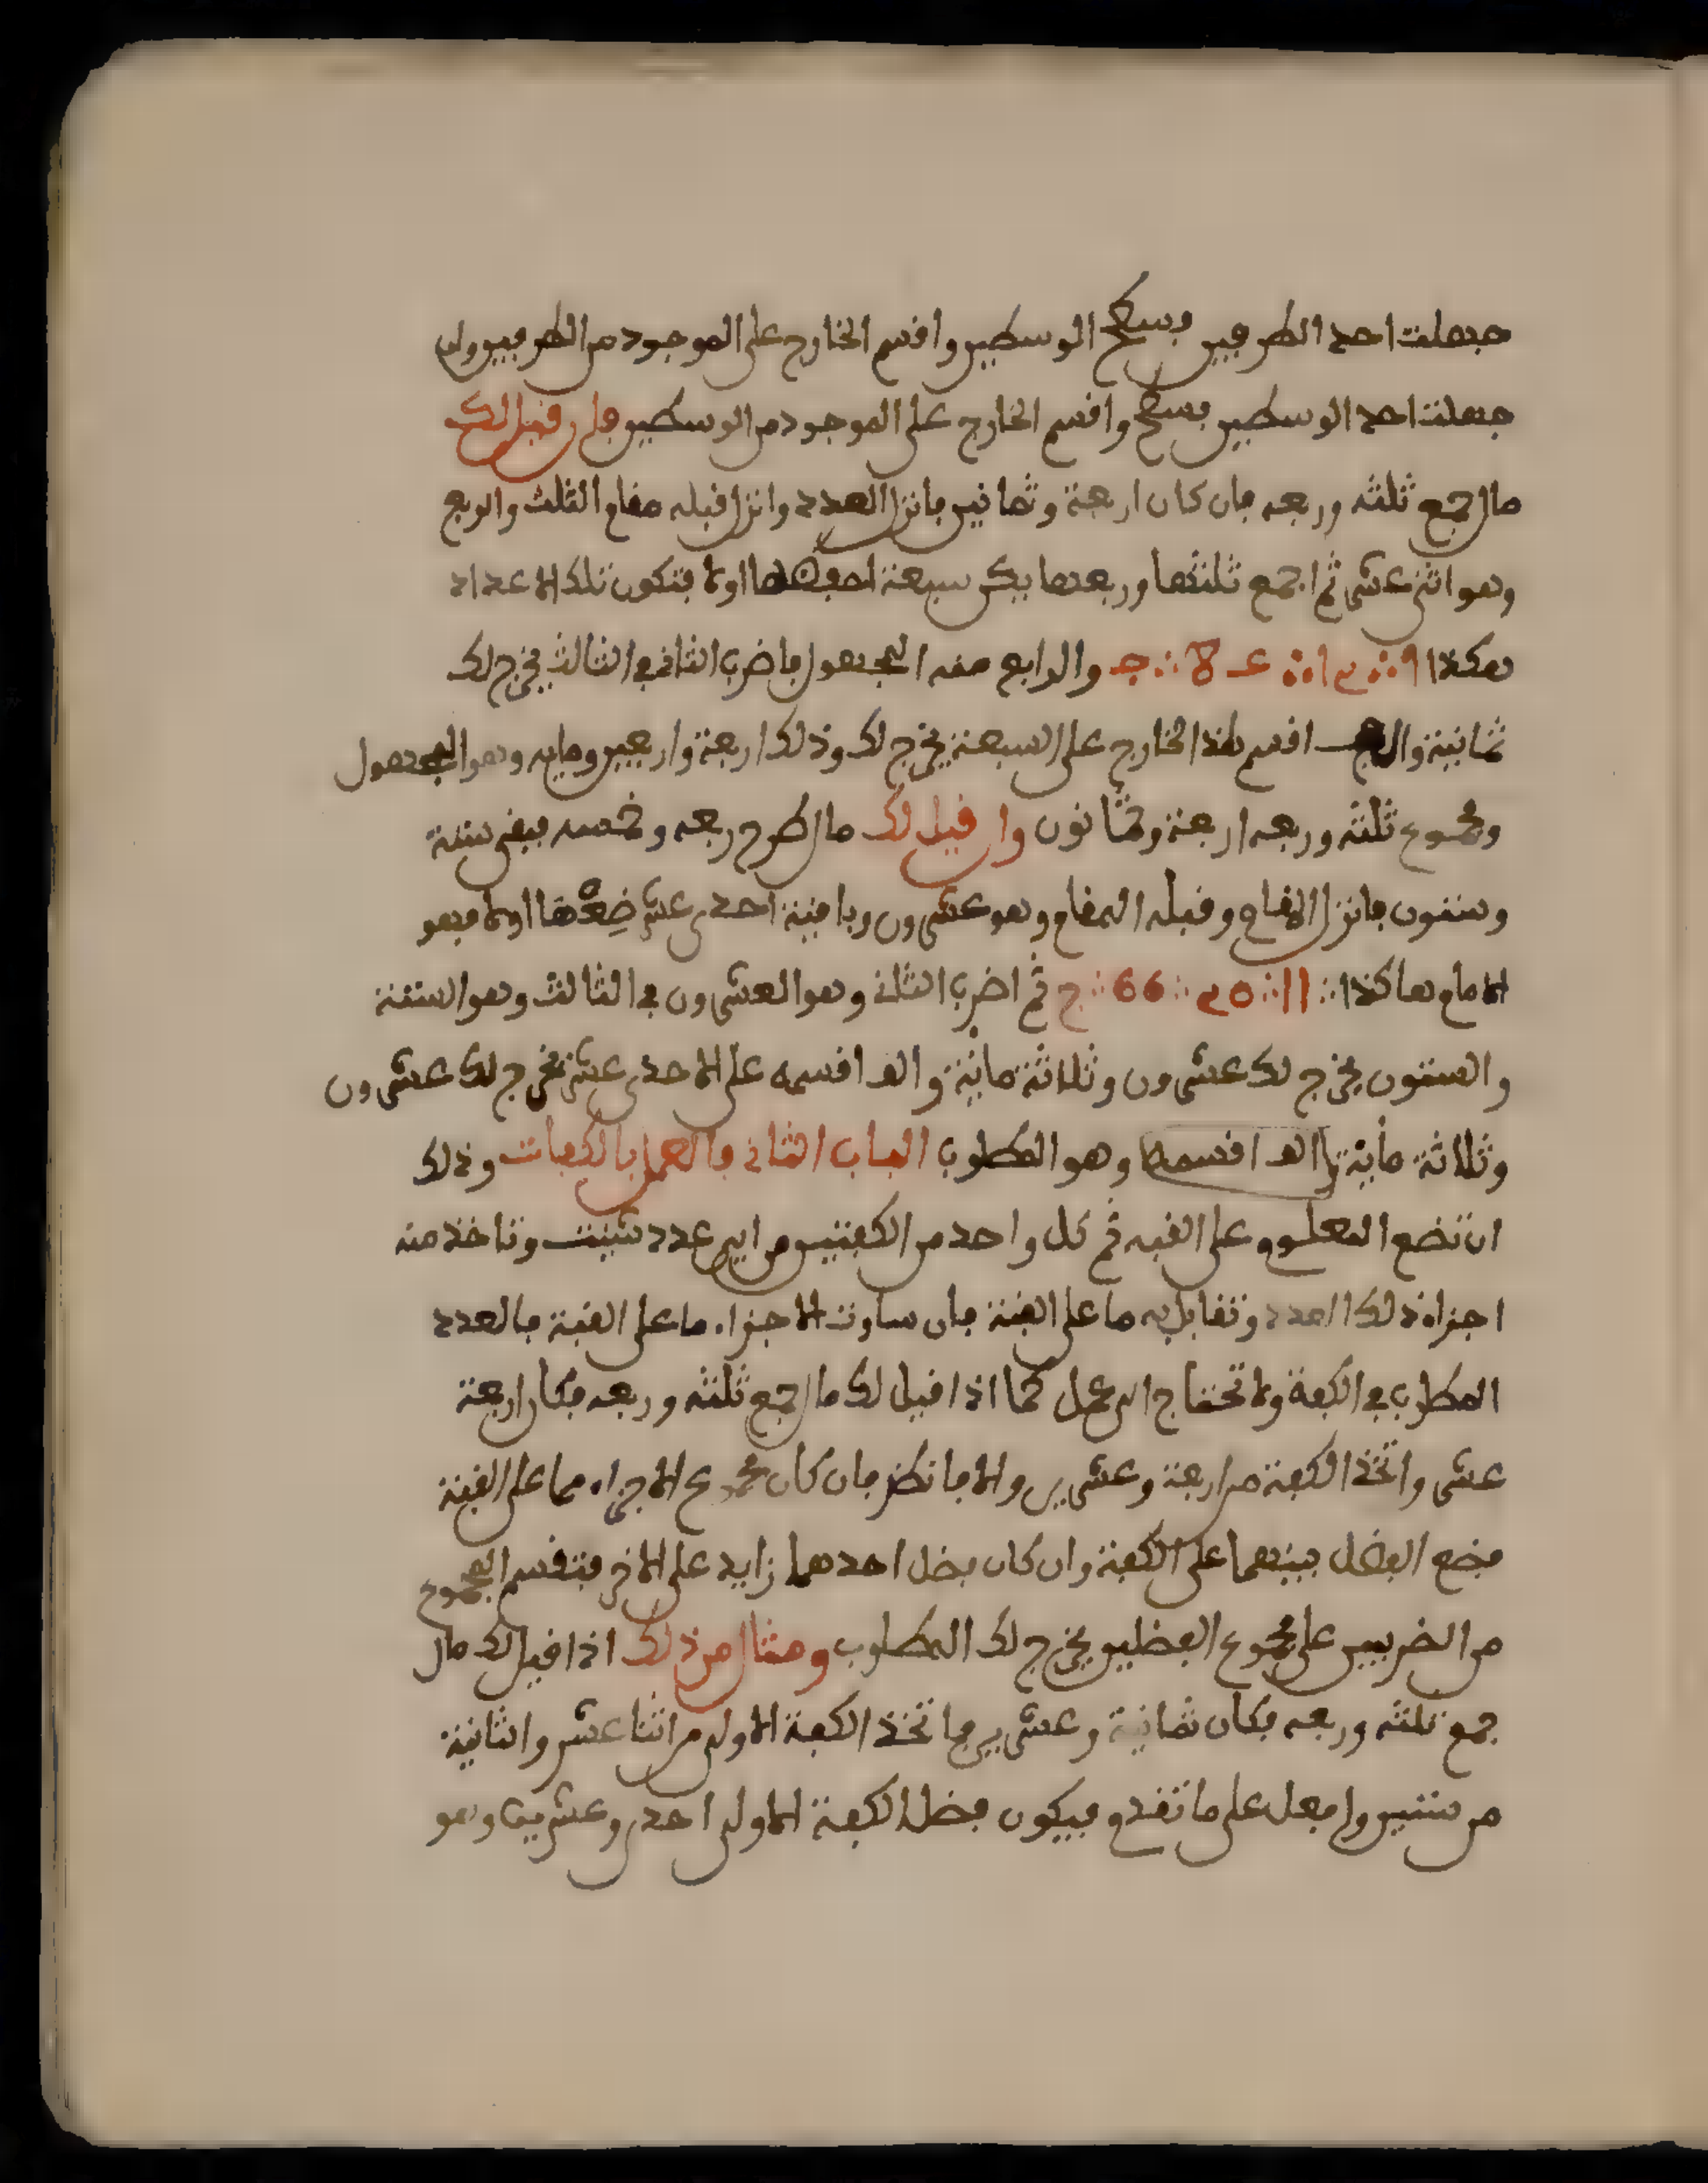 جهلت احد الطرفين فسطح الوسطين واقسم الخارج على الموجود من الطرفين وان
جهلت احد الوسطين فسطح واقسم الخارج على الموجود من الوسطين فان قيل لك
مال جمع ثلثه وربعه فان كان اربعة وثمانين فانزل العدد وانزل قبله مقام الثلث والربع
وهو اثنى عشر ثم اجمع ثلثها وربعها يكن سبعة اولا فتكون تلك الاعداد
هكذا والرابع منه المجهول فاضرب الثاني في الثالث يخرج لك
ثمانية والف اقسم هذا الخارج على السبعة يخرج لك وذلك اربعة واربعين ومايه وهو المجهول
ومجموع ثلثه وربعه اربعة وثمانون وان قيل لك مال طرح ربعه وخمسه فبقى ستة
وستون فانزل وقبله المقام وهو عشرون وباقية احدى عشر ضعها اولا فهو
الامام هاكذا ∴ 11 ∴ 20 ∴ 66 ∴ ج ثم اضرب الثاني وهو العشرون في الثالث وهو الستة
والستون يخرج لك عشرون وثلاثة ماية والف اقسمه على الاحدى عشر يخرج لك عشرون
وثلاثة ماية والف اقسمه وهو المطلوب الباب الثاني في العمل بالكفات وذلك
ان تضع المعلوم على القبه ثم كل واحد من الكفتين من اي عدد شيت وتاخذ منه
اجزاء ذلك العدد وتقابل به ما على القبة فان ساوت الاجزاء ما على القبة فالعدد
المطلوب في الكفة ولا تحتاج الى عمل كما اذا قيل لك مال جمع ثلثه وربعه فكان اربعة
عشر واتخذ الكفة من اربعة وعشرين والا فانظر فان كان مجموع الاجزاء مما على القبة
فضع الفضل بينهما على الكفة وان كان فضل احدهما زايد على الاخر فتقسم المجموع
من الضربين على مجموع الفضلين يخرج لك المطلوب ومثال من ذلك اذا قيل لك مال
جمع ثلثه وربعه فكان ثمانية وعشرين فاتخذ الكفة الاولى من اثنا عشر والثانية
من ستين وافعل على ما تقدم فيكون فضل الكفة الاولى احدى وعشرين وهو